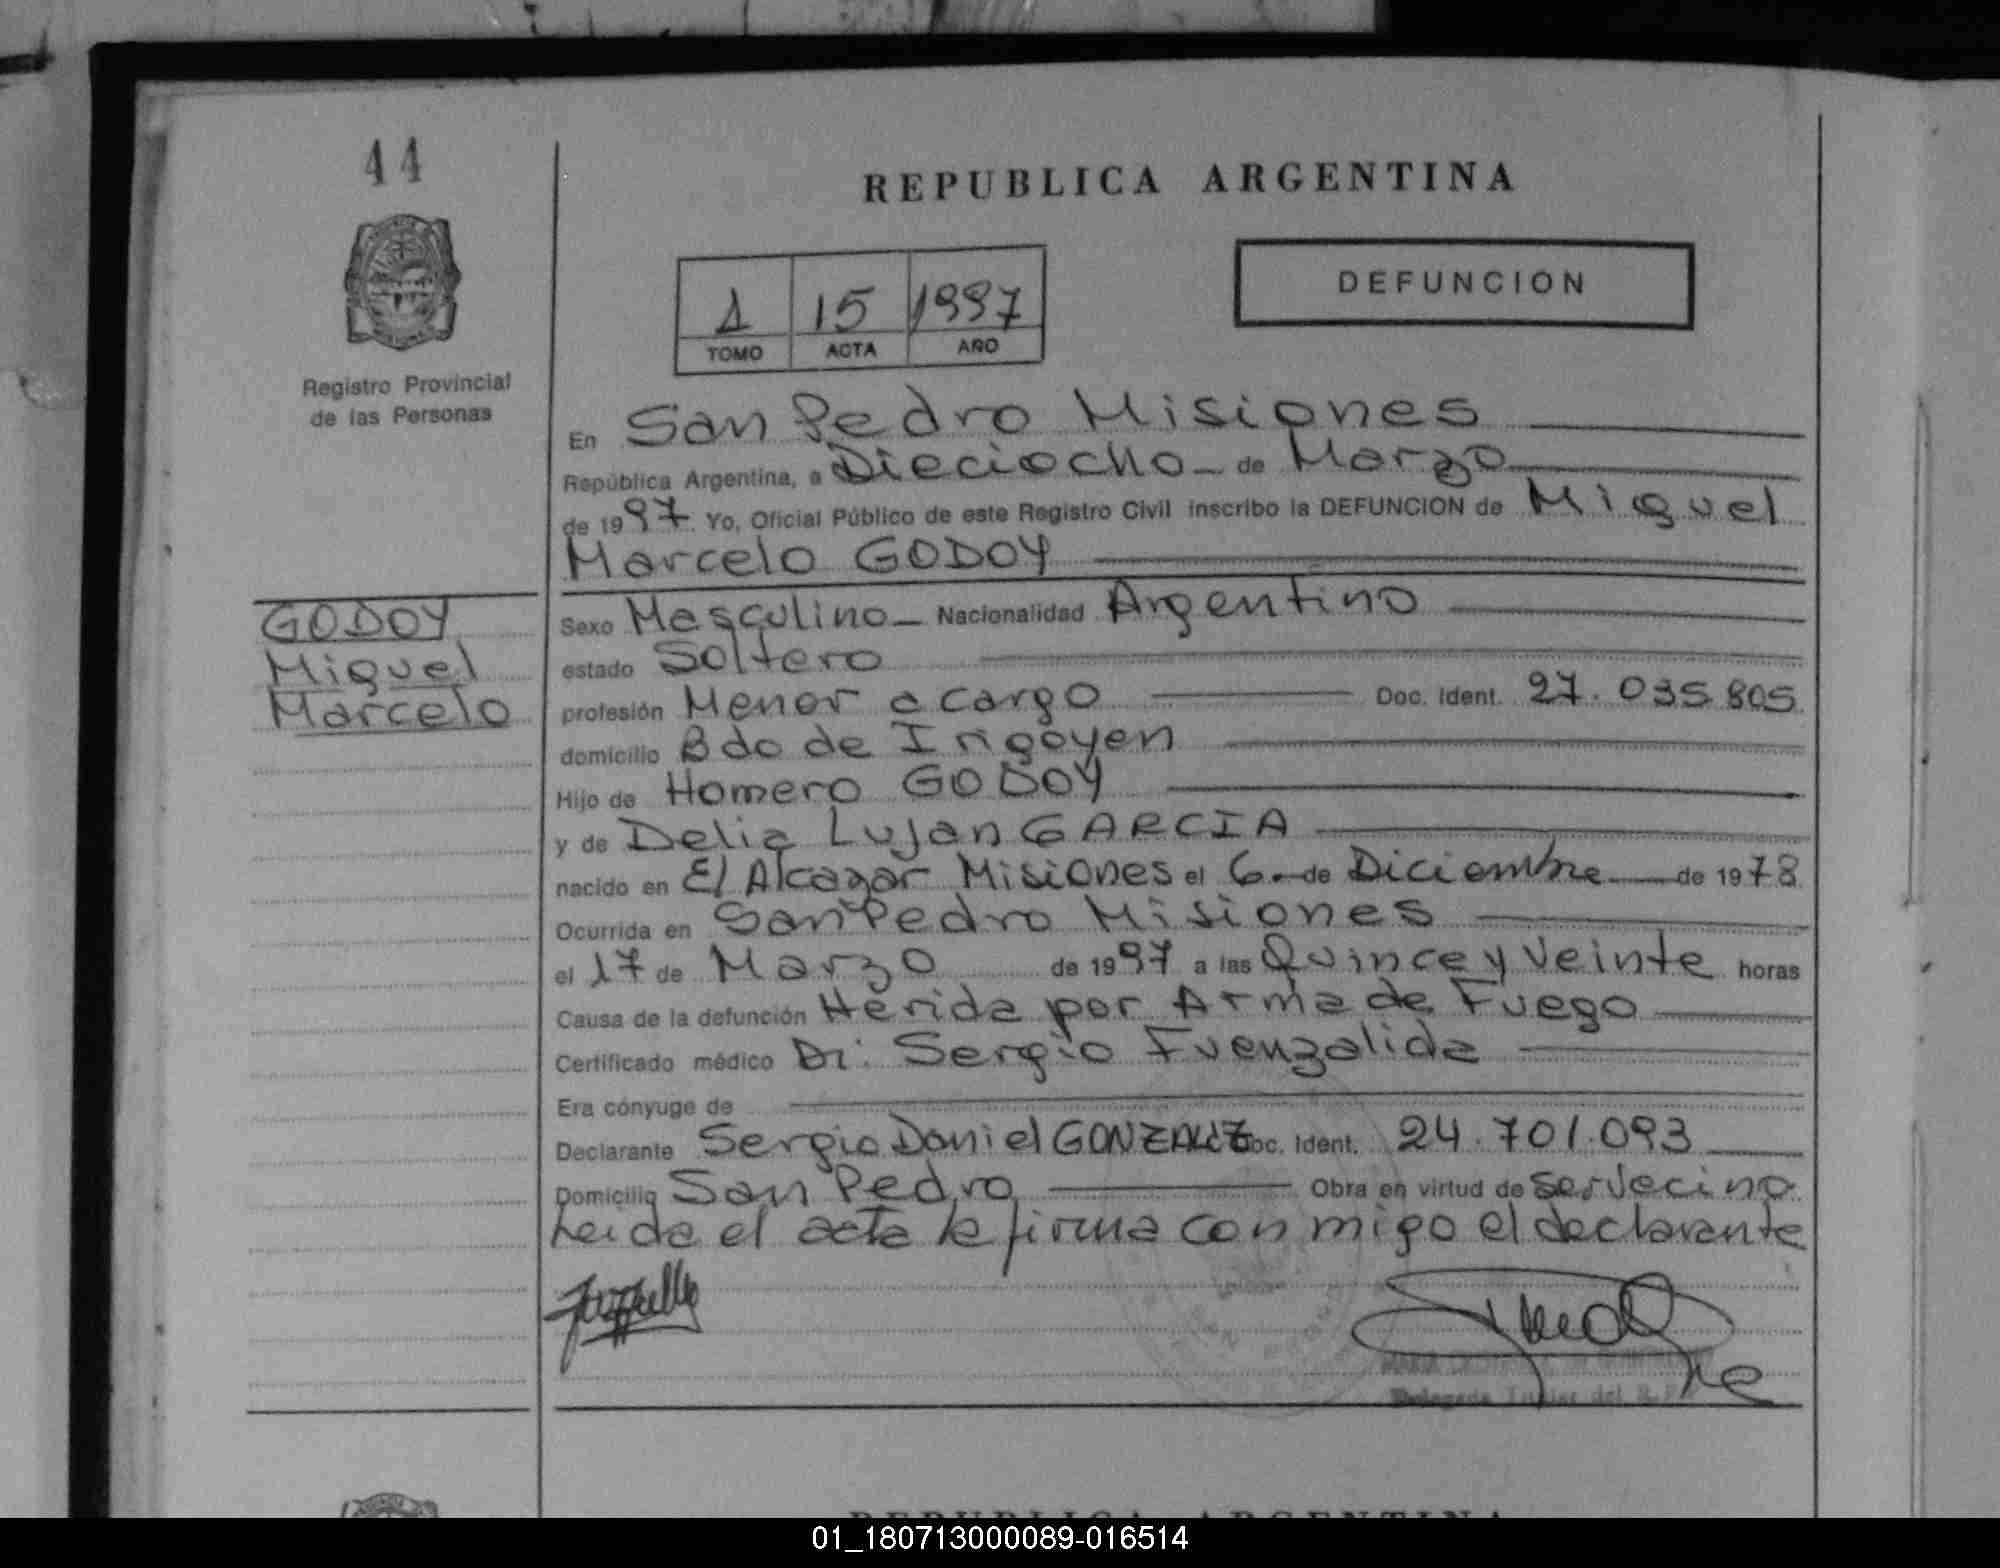 44
REPUBLICA ARGENTINA
DEFUNCION
1 15 1997
TOMO ACTA AÑO
Registro Provincial
de las Personas
En San Pedro Misiones
República Argentina, a Dieciocho de Marzo
de 1997 Yo, Oficial Público de este Registro Civil inscribo la DEFUNCION de Miguel
Marcelo GODOY
GODOY
Miguel
Marcelo
Sexo Masculino Nacionalidad Argentino
estado Soltero
profesión Menor a cargo Doc. Ident. 27.035.805
domicilio Bdo de Irigoyen
Hijo de Homero GODOY
y de Delia Lujan GARCIA
nacido en El Alcazar Misiones el 6 de Diciembre de 1978
Ocurrida en San Pedro Misiones
el 17 de Marzo de 1997 a las Quince y Veinte horas
Causa de la defunción Herida por Arma de Fuego
Certificado médico Dr: Sergio Fuenzalida
Era cónyuge de
Declarante Sergio Daniel GONZALEZ Doc. Ident. 24.701.093
Domicilio San Pedro Obra en virtud de ser vecino
Leida el acta la firma con migo el declarante
REPUBLICA ARGENTINA
01_180713000089-016514